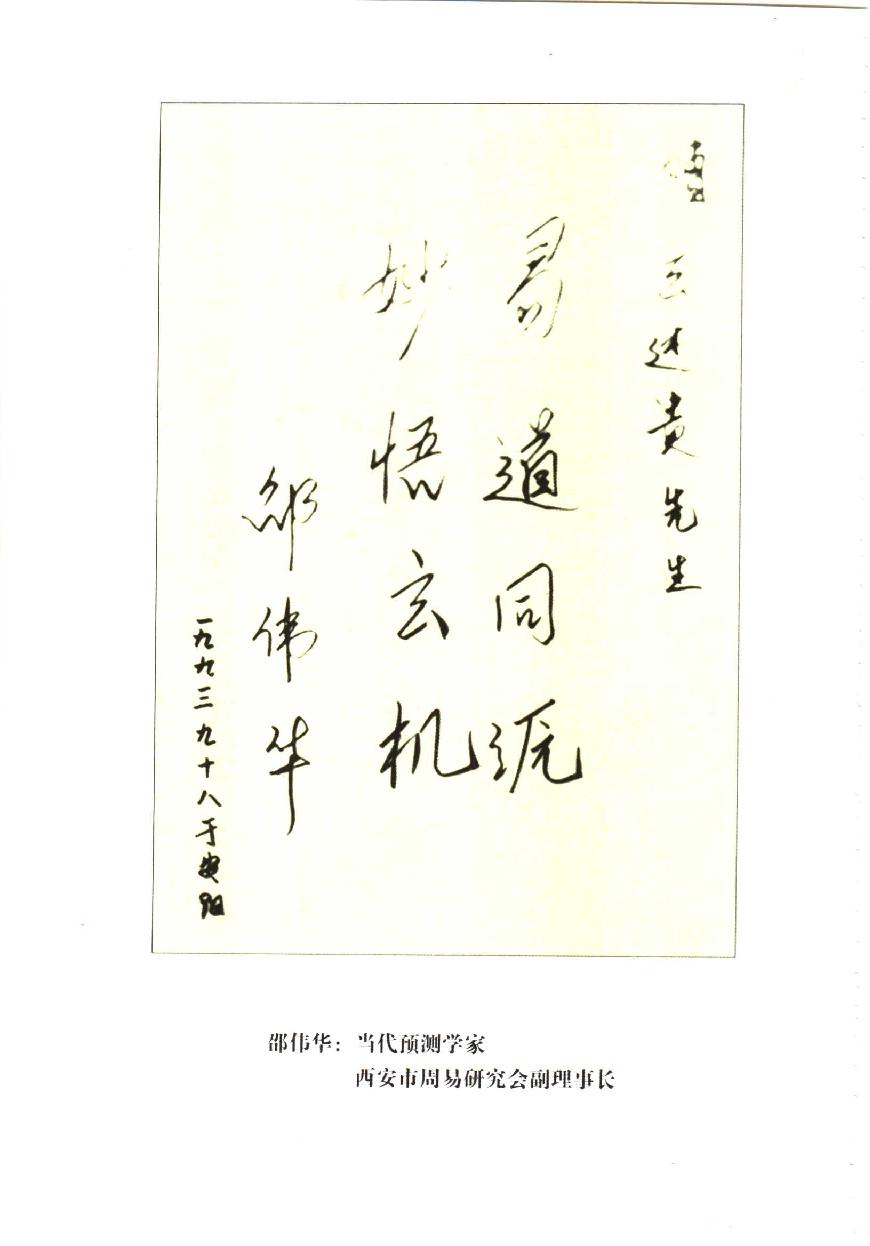 赠
王述贵先生
易道同源
妙悟玄机
邵伟华
一九九三九十八于贵阳
邵伟华：当代预测学家
西安市周易研究会副理事长